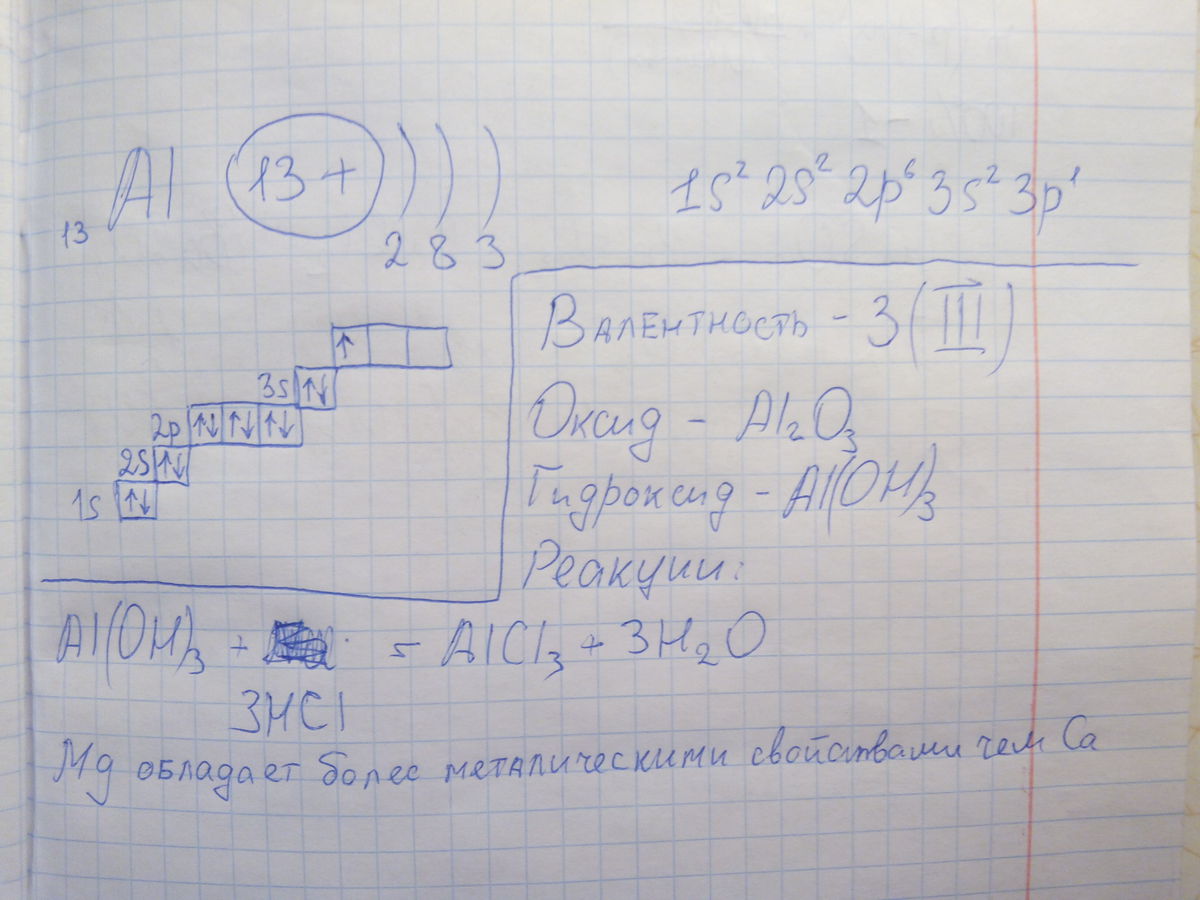 13 Al (13+) ) ) ) 1s² 2s² 2p⁶ 3s² 3p¹
2 8 3
Валентность - 3 (III)
↑
3s ↑↓
Оксид - Al₂O₃
2p ↑↓ ↑↓ ↑↓
2S ↑↓
Гидроксид - Al(OH)₃
1s ↑↓
Реакции:
Al(OH)₃ + = AlCl₃ + 3H₂O
3HCl
Mg обладает более металическими свойствами чем Ca